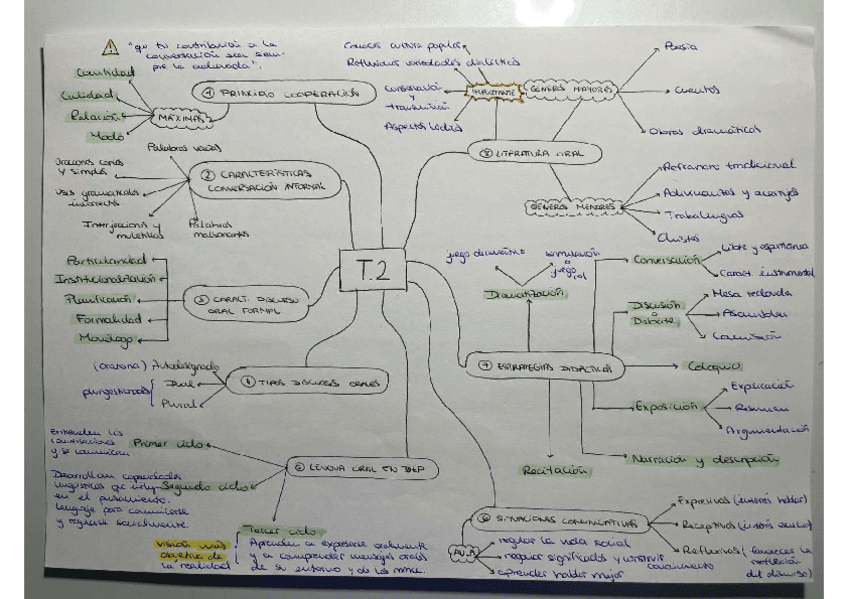 "que tu contribución a la
conversación sea siem-
pre la adecuada".
Cantidad
Calidad
Relación
Modo
MÁXIMAS
1 PRINCIPIO COOPERACIÓN
Palabras vacías
Oraciones cortas
y simples
Usos gramaticales
incorrectos
Interjecciones y
muletillas
Palabras
malsonantes
2 CARACTERÍSTICAS
CONVERSACIÓN INFORMAL
Particularidad
Institucionalización
Planificación
Formalidad
Monólogo
3 CARACT. DISCURSO
ORAL FORMAL
T.2
Autodesignado
plurigestionados
Dual
Plural
TIPOS DISCURSOS ORALES
Entienden las
conversaciones
y se comunican.
Primer ciclo
Desarrollan capacidades
lingüísticas que
Segundo ciclo
en el pensamiento.
Lenguaje para comunicarse
y regularse socialmente.
Tercer ciclo
visión más
objetiva de
la realidad
Aprenden a expresarse oralmente
y a comprender mensajes orales
de su entorno y de los mmc.
LENGUA ORAL EN
Conocer cultura popular
Reflexionar variedades dialécticas
Conservación
y
transmisión
Aspectos lúdicos
IMPORTANTE
GÉNEROS MAYORES
Poesía
Cuentos
Obras dramáticas
8 LITERATURA ORAL
GÉNEROS MENORES
Refranero tradicional
Adivinanzas y acertijos
Trabalenguas
Chistes
juego dramático
simulación
o
juego
rol
Dramatización
Conversación
Libre y espontánea
Caract. instrumental
Discusión
o
Debate
Mesa redonda
Asamblea
Comisión
7 ESTRATEGIAS DIDÁCTICAS
Coloquio
Exposición
Explicación
Resumen
Argumentación
Narración y descripción
Recitación
6 SITUACIONES COMUNICATIVAS
Expresivas (interés hablar)
Receptivas
Reflexivas (favorecer la
reflexión
del discurso)
AULA
regular la vida social
negociar significados y construir
conocimiento
aprender hablar mejor